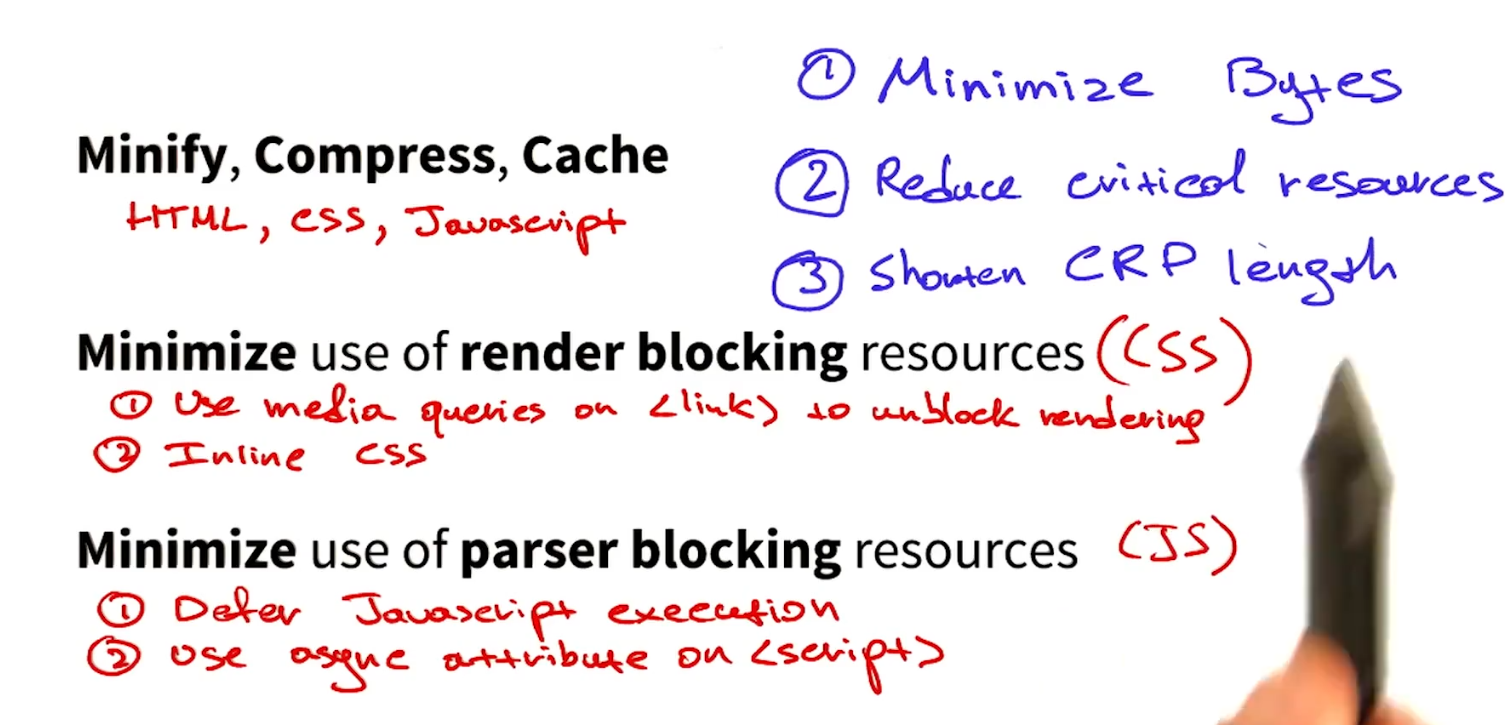 ① Minimize Bytes
② Reduce critical resources
③ Shorten CRP length
Minify, Compress, Cache
HTML, CSS, Javascript
Minimize use of render blocking resources (CSS)
① Use media queries on <link> to unblock rendering
② Inline CSS
Minimize use of parser blocking resources (JS)
① Defer Javascript execution
② Use async attribute on <script>